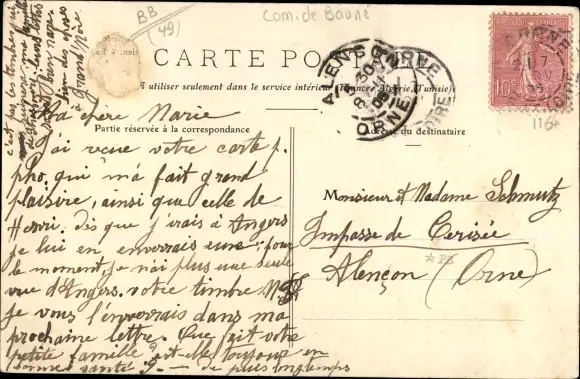 BB
(49)
Com. de Bauné
CARTE POSTALE
A utiliser seulement dans le service intérieur (France, Algérie, Tunisie)
Partie réservée à la correspondance
Adresse du destinataire
Ma chère Marie
J'ai reçue votre carte p.
pho, qui m'a fait grand
plaisire, ainsi que celle de
Henri. dès que j'irais à Angers
je lui en enverrais une; pour
le moment, je n'ai plus une seule
vue d'Angers. votre timbre
je vous l'enverrais dans ma
prochaine lettre. Que fait votre
petite famille est-elle toujours en
bonne santé ? — de puis longtemps
Monsieur et Madame Schmutz
Impasse de Cerisée
Alençon (Orne)
*BB
116+
ALENÇON
ORNE
REPUBLIQUE FRANÇAISE
10c